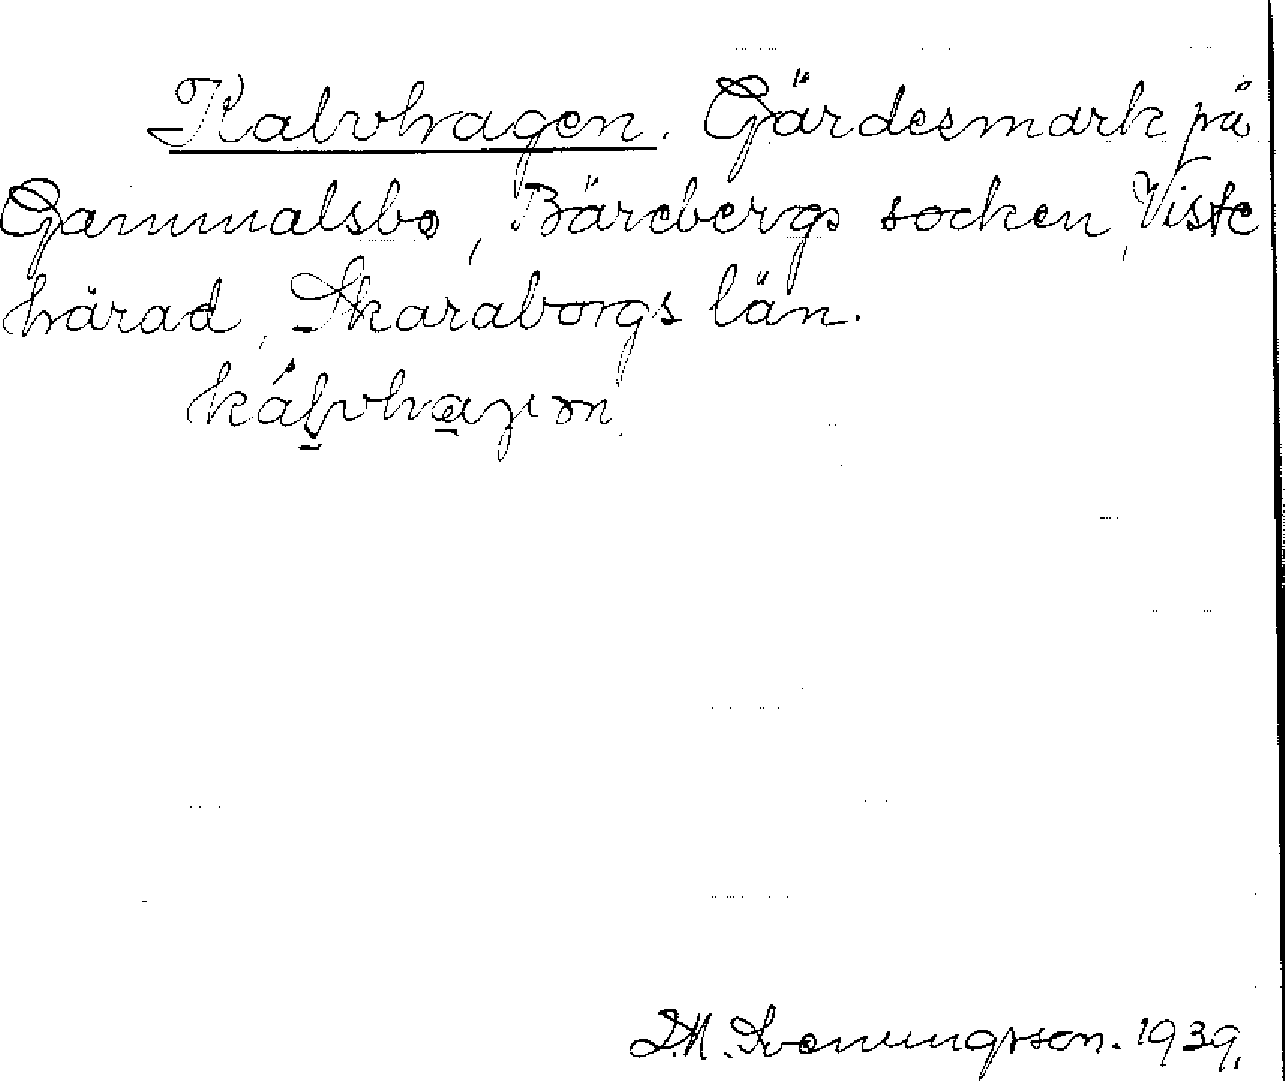 Kalvhagen. Gärdesmark på
Gammalsbo, Bärebergs socken, Viste
härad, Skaraborgs län.
D.M. Svenungsson. 1939.